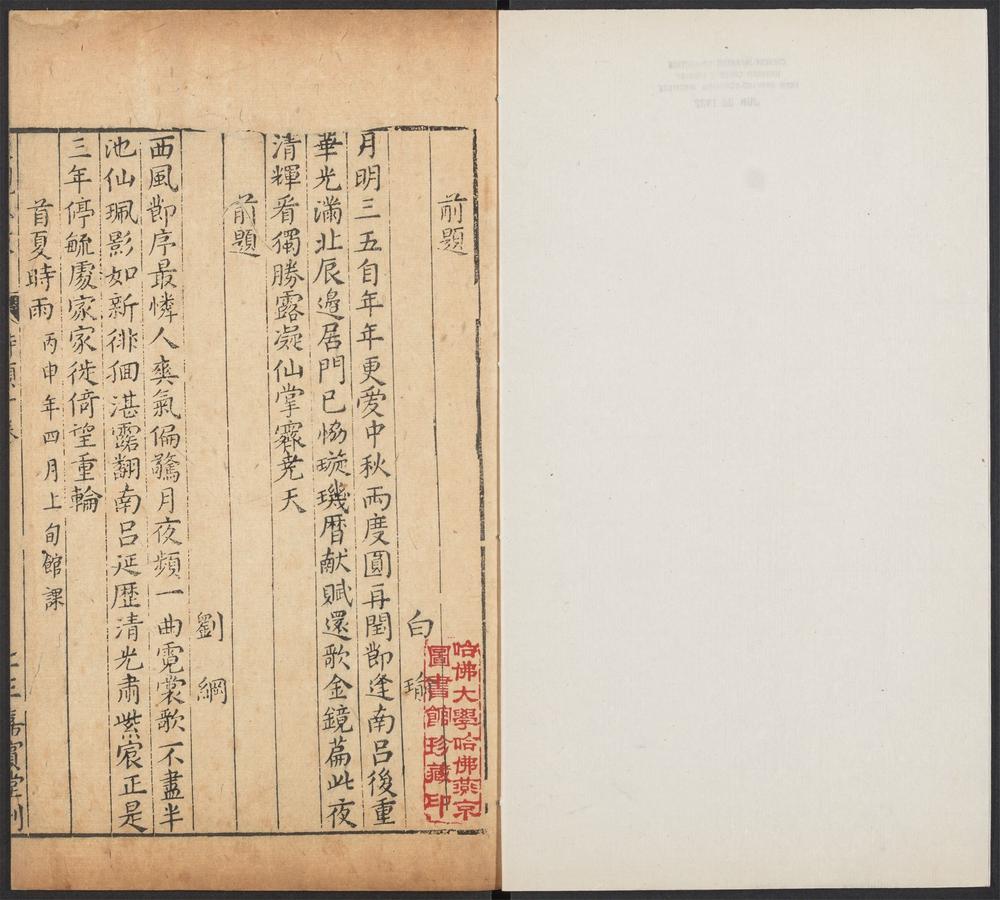 前題
白瑜
月明三五自年年更愛中秋兩度圓再閏節逢南呂後重
華光滿北辰邊居門已恊璇璣曆献賦還歌金鏡篇此夜
清輝看獨勝露凝仙掌霽尭天
前題
劉綱
西風節序最憐人爽氣偏驚月夜頻一曲霓裳歌不盡半
池仙珮影如新徘徊湛露翻南呂延歷清光肅紫宸正是
三年停毓處家家徙倚望重輪
首夏時雨丙申年四月上旬館課
嘉賓堂刻
哈佛大學哈佛燕京
圖書館珍藏印